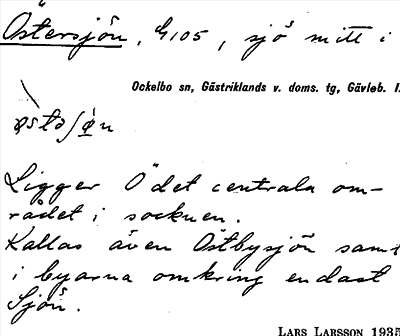 Östersjön, G105, sjö mitt i
Ockelbo sn, Gästriklands v. doms. tg, Gävleb. l.
Ligger Ö det centrala om-
rådet i socknen.
Kallas även Östbysjön samt
i byarna omkring endast
Sjön.
LARS LARSSON 1935